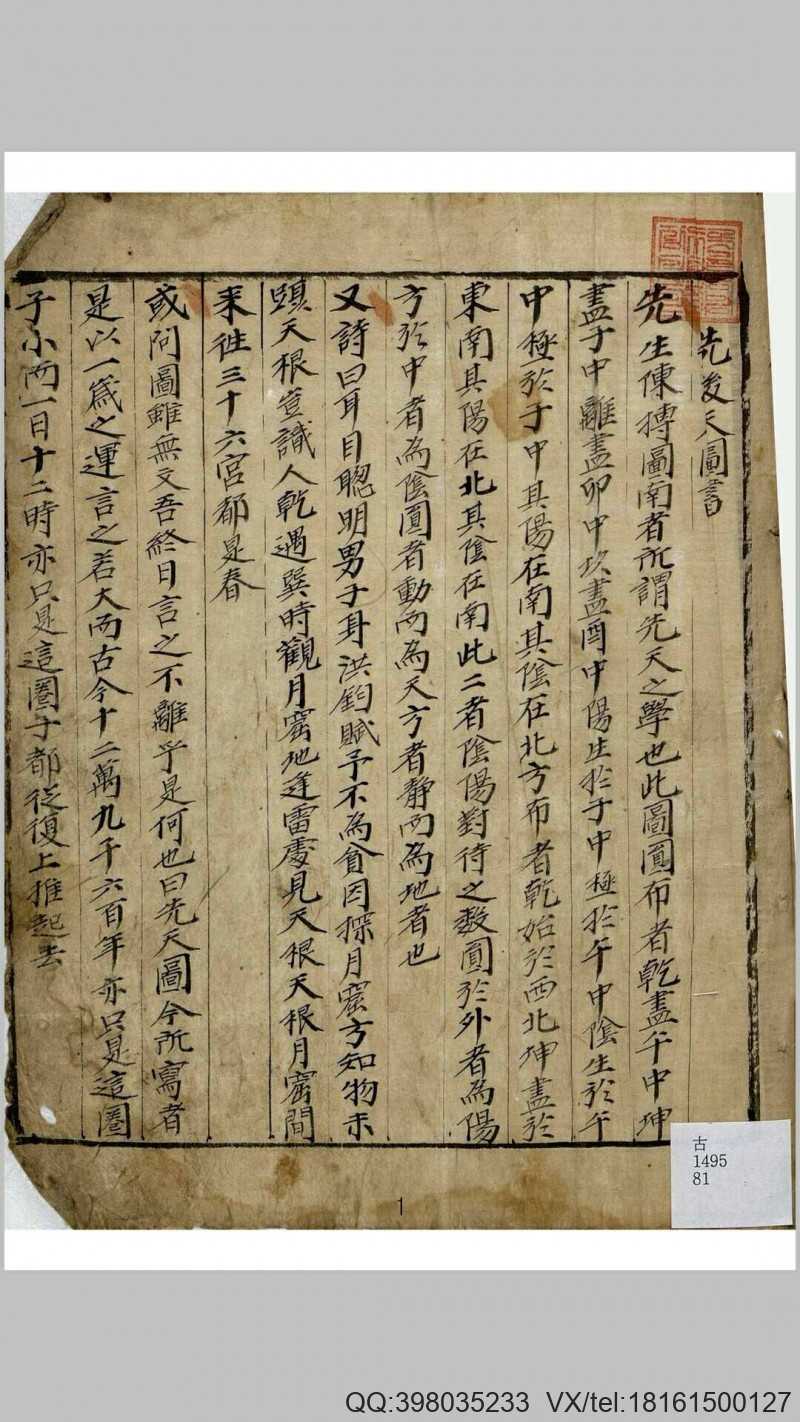 先後天圖書
先生陳摶圖南者所謂先天之學也此圖圓布者乾盡午中坤
盡子中離盡卯中坎盡酉中陽生於子中極於午中陰生於午
中極於子中其陽在南其陰在北方布者乾始於西北坤盡於
東南其陽在北其陰在南此二者陰陽對待之數圓於外者為陽
方於中者為陰圓者動而為天方者静而為地者也
又詩曰耳目聰明男子身洪鈞賦予不為貧因探月窟方知物未
躡天根豈識人乾遇巽時觀月窟地逢雷處見天根天根月窟間
来徃三十六宮都是春
或問圖雖無文吾終日言之不離乎是何也曰先天圖今所寫者
是以一歲之運言之若大而古今十二萬九千六百年亦只是這圈
子小而一日十二時亦只是這圈子都從復上推起去
古
1495
81
1
QQ:398035233 VX/tel:18161500127